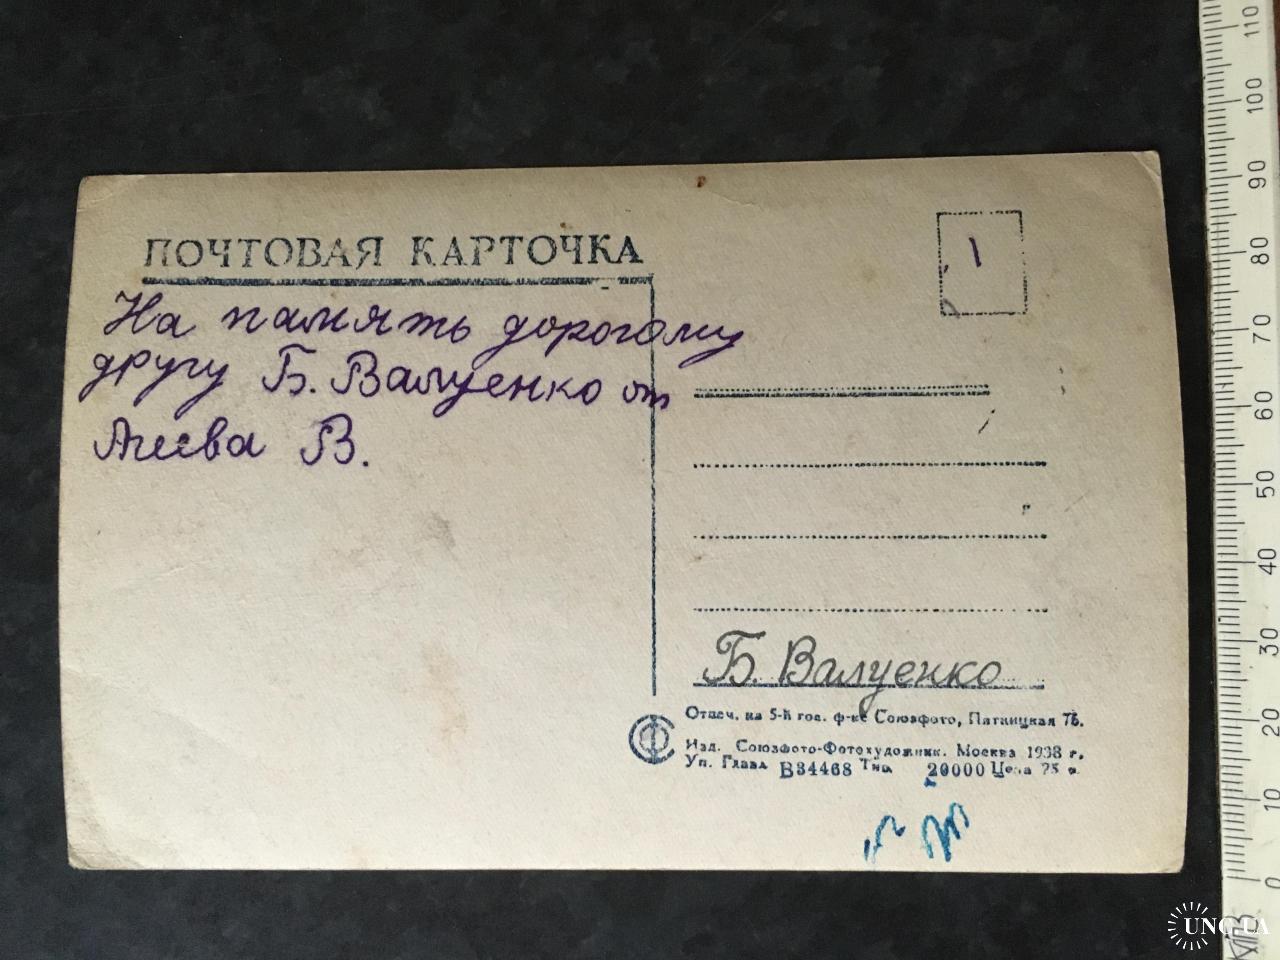 ПОЧТОВАЯ КАРТОЧКА
На память дорогому
другу Б. Валуенко от
В.
Б. Валуенко
Отпеч. на 5-й гос. ф-ке Союзфото, Пятницкая 76.
Изд. Союзфото-Фотохудожник. Москва 1938 г.
Уп. Главл. В34468 Тир. 20000 Цена 75 к.
110
100
90
80
70
60
50
40
30
20
10
0
UNC.UA